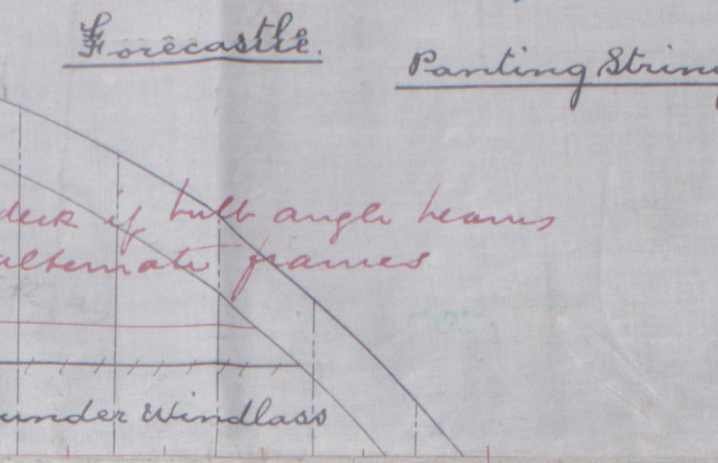 Forecastle.
Panting String
deck if bulb angle beams
alternate frames
under Windlass